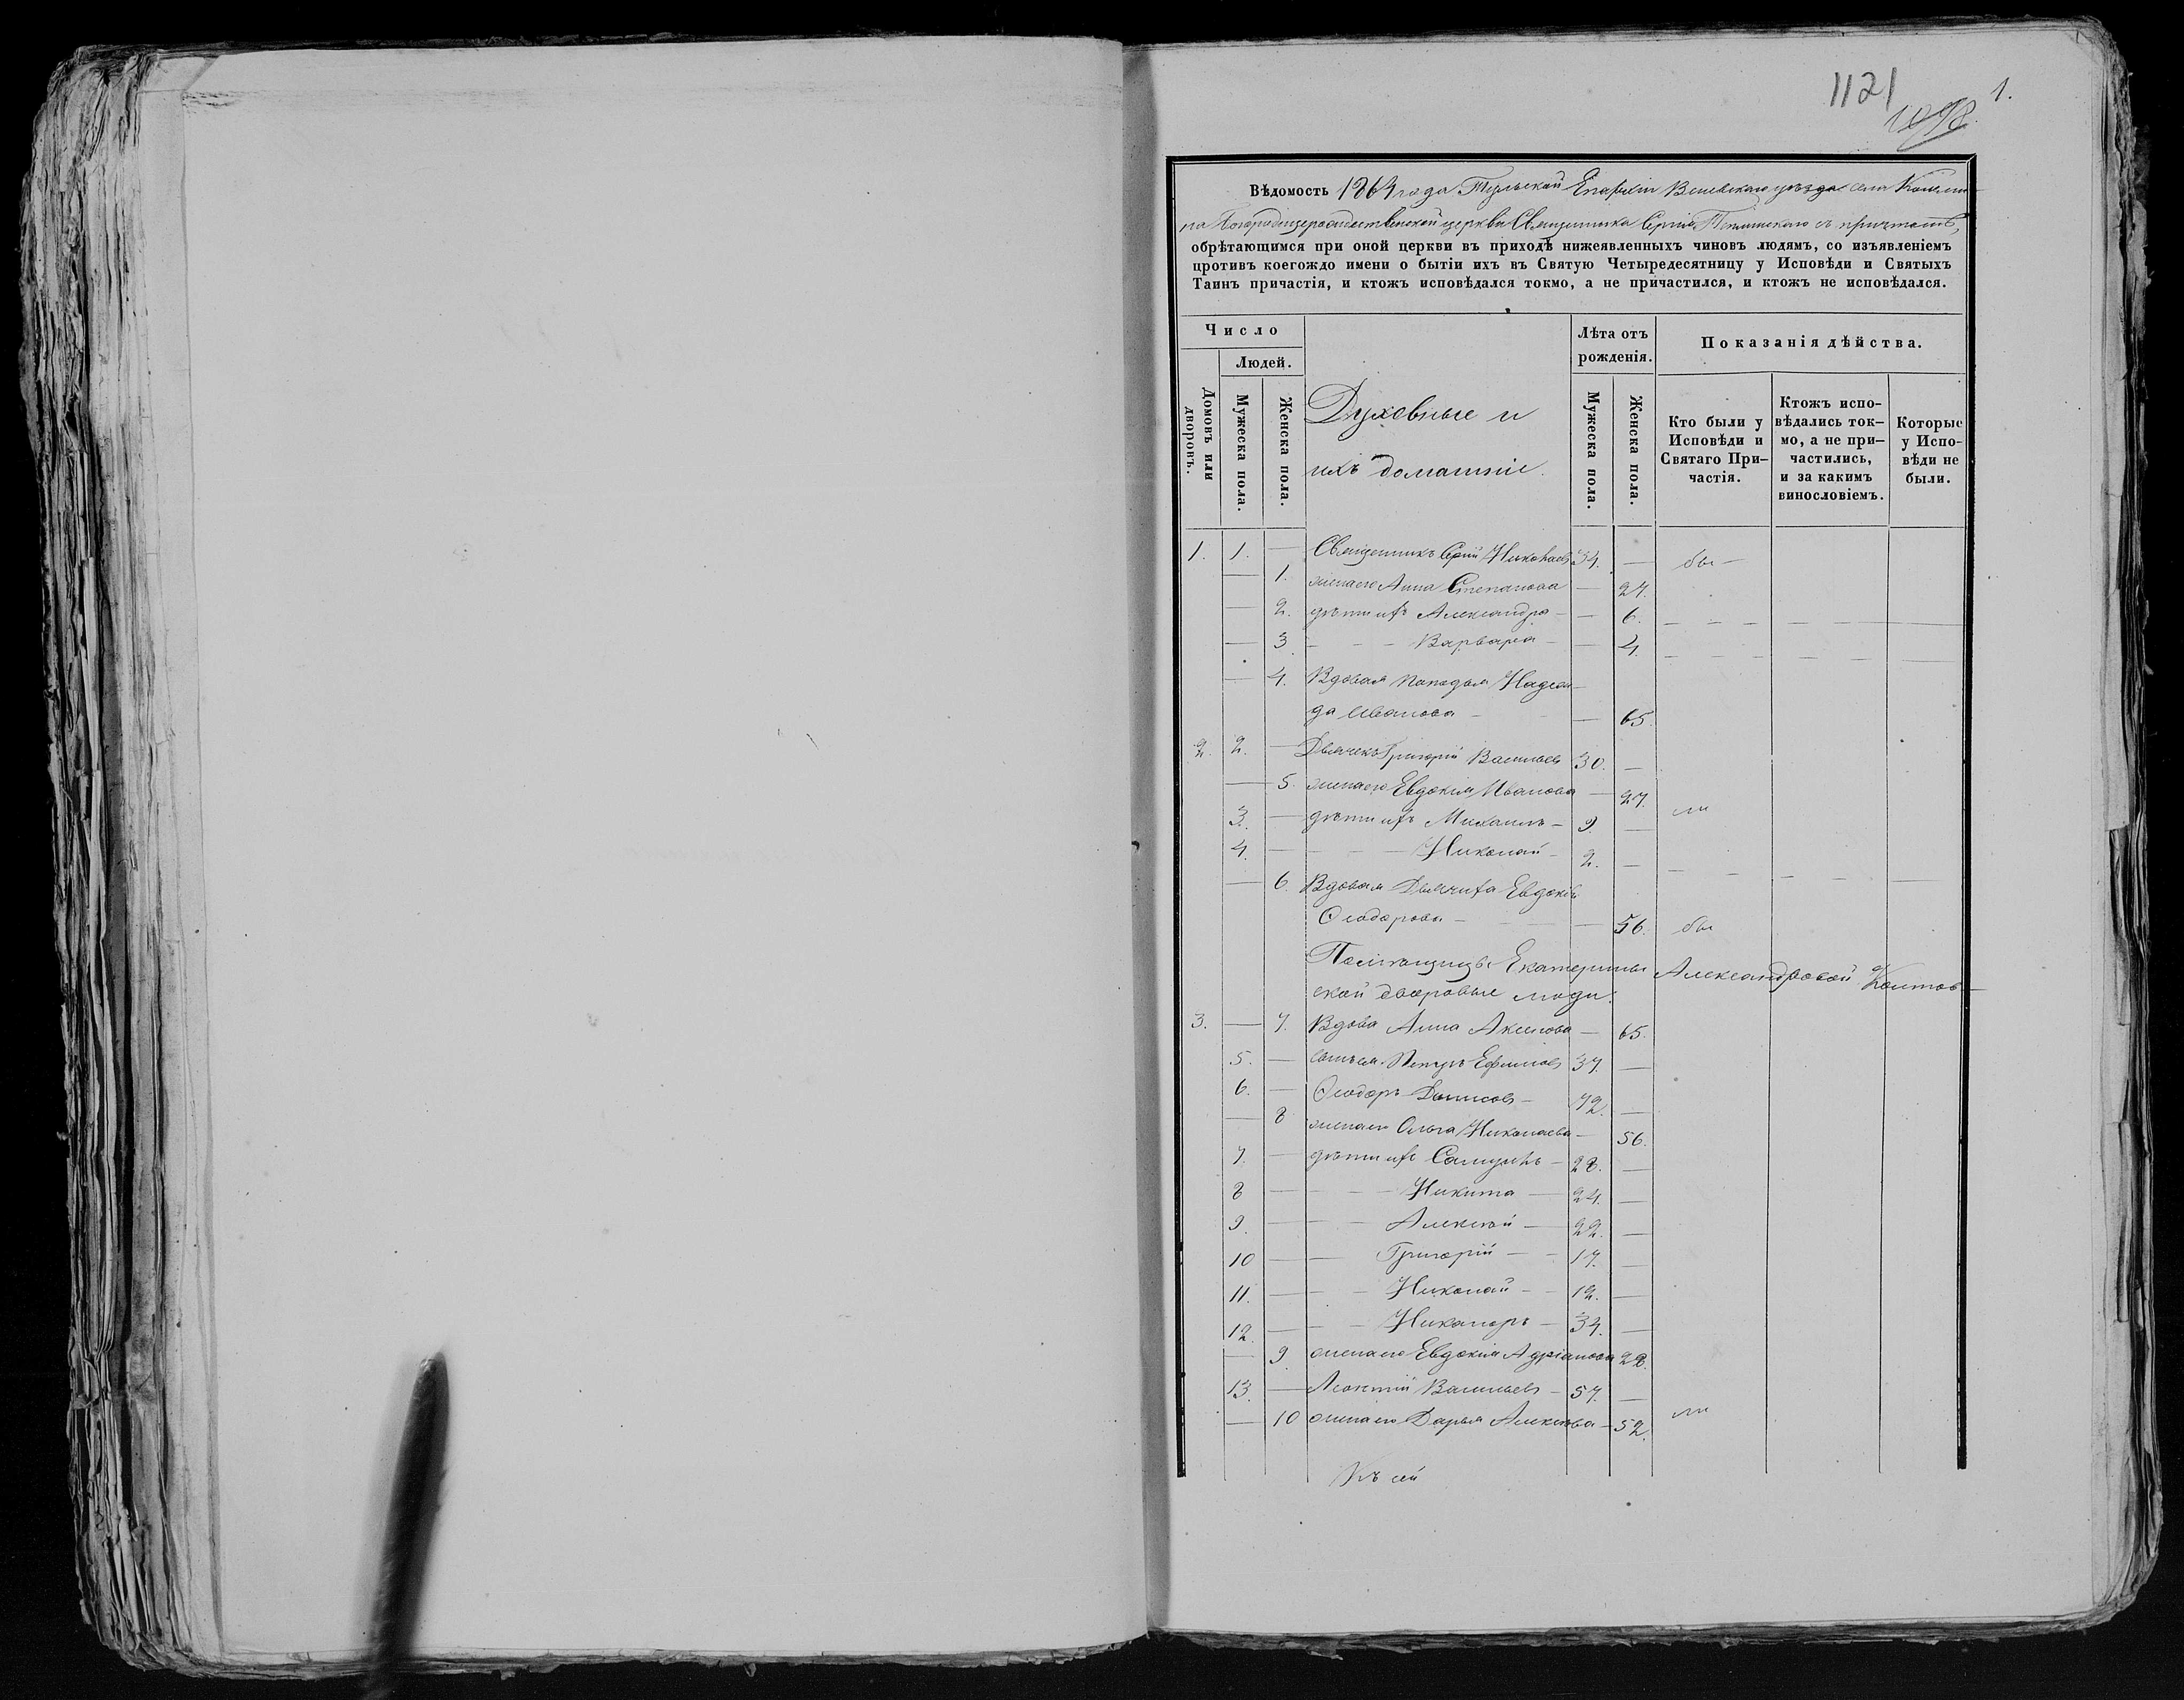 1121
1098.
1.
Вѣдомость 1864 года Тульской Епархіи Веневскаго уѣзда села
на Богородицерождественской церкви Священника Сергія съ причтомъ,
обрѣтающимся при оной церкви въ приходѣ нижеявленныхъ чиновъ людямъ, со изъявленіемъ
противъ коегождо имени о бытіи ихъ въ Святую Четыредесятницу у Исповѣди и Святыхъ
Таинъ причастія, и ктожъ исповѣдался токмо, а не причастился, и ктожъ не исповѣдался.
Число
Людей.
Домовъ или дворовъ.
Мужеска пола.
Женска пола.
Духовные и
ихъ домашніе.
Лѣта отъ
рожденія.
Мужеска пола.
Женска пола.
Показанія дѣйства.
Кто были у
Исповѣди и
Святаго При-
частія.
Ктожъ испо-
вѣдались ток-
мо, а не при-
частились,
и за какимъ
винословіемъ.
Которые
у Испо-
вѣди не
были.
1. 1. — Священникъ Сергій Николаевъ 34. — бы —
— 1. жена его Анна Степанова — 27.
— 2. дѣти ихъ Александра — — 6.
— 3. - - - Варвара — — 4.
— 4. Вдовая попадья Надеж-
да Иванова — — 65.
2. 2. — Дьячекъ Григорій Васильевъ 30. —
— 5. жена его Евдокія Иванова — 27. ли
3. — дѣти ихъ Михаилъ — 9. —
4. — - - Николай — 2. —
— 6. Вдовая Дьячиха Евдокія
Ѳеодорова — — 56. бы
Помѣщицы Екатерины Александровой
ской дворовые люди.
3. — 7. Вдова Анна Акимова — 65.
5. — сынъ ея Петръ Ефимовъ 37. —
6. — Ѳеодоръ Денисовъ — 72. —
— 8 жена его Ольга Николаева — 56.
7. — дѣти ихъ Самуилъ — 28. —
8 — - - Никита — 24. —
9. — - - Алексѣй — 22. —
10 — - Григорій — 17. —
11. — - - Николай — 12. —
12. — - - Никаноръ — 34. —
— 9. жена его Евдокія Адріанова 28.
13. — Леонтій Васильевъ — 57. —
— 10 жена его Дарья Алексѣева — 52. ли
Къ сей